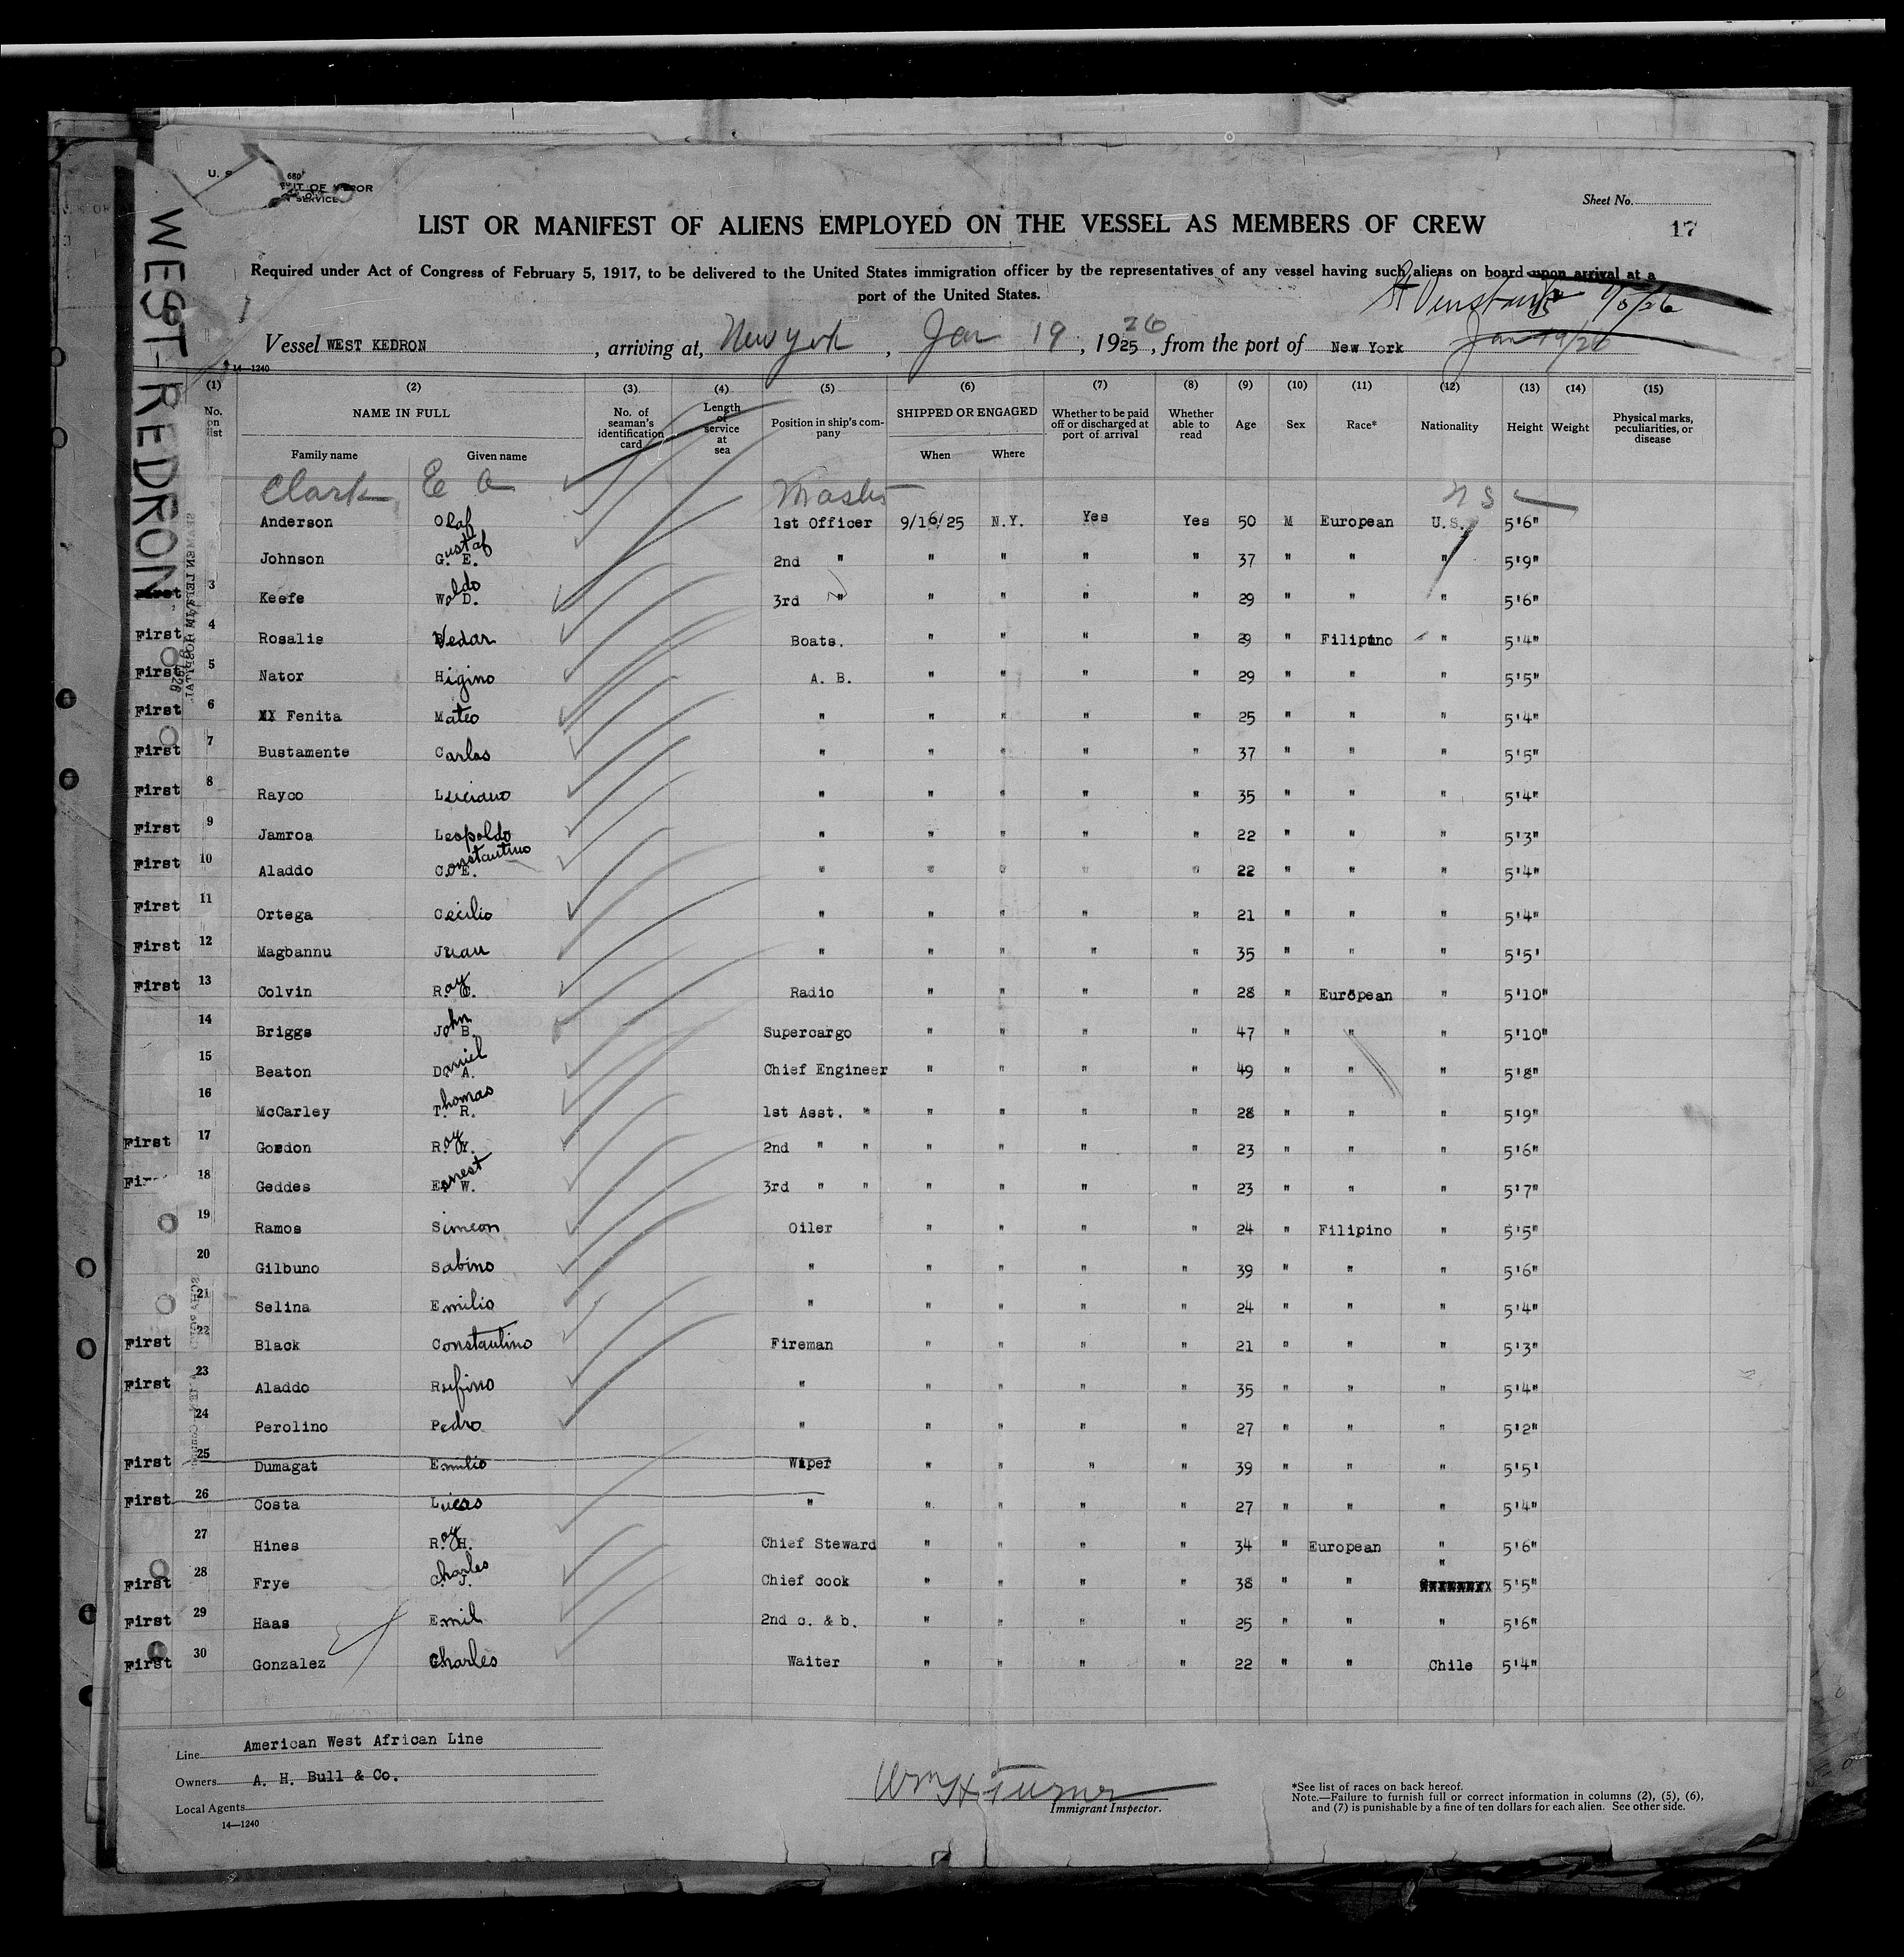 WEST-KEDRON
Sheet No.
17
LIST OR MANIFEST OF ALIENS EMPLOYED ON THE VESSEL AS MEMBERS OF CREW
Required under Act of Congress of February 5, 1917, to be delivered to the United States immigration officer by the representatives of any vessel having such aliens on board upon arrival at a
port of the United States.
Vessel WEST KEDRON, arriving at, New York, Jan 19, 1925 26, from the port of New York Jan 19/26
14—1240
(1) (2) (3) (4) (5) (6) (7) (8) (9) (10) (11) (12) (13) (14) (15)
No. on list NAME IN FULL No. of seaman's identification card Length of service at sea Position in ship's company SHIPPED OR ENGAGED Whether to be paid off or discharged at port of arrival Whether able to read Age Sex Race* Nationality Height Weight Physical marks, peculiarities, or disease
Family name Given name When Where
Clark E A Master U S
Anderson Olaf 1st Officer 9/16/25 N.Y. Yes Yes 50 M European U.S. 5'6"
Johnson Gustaf E. 2nd " " " " " 37 " " " 5'9"
First 3 Keefe Waldo D. 3rd " " " " " 29 " " " 5'6"
First 4 Rosalis Vedar Boats. " " " " 29 " Filipino " 5'4"
First 5 Nator Higino A. B. " " " " 29 " " " 5'5"
First 6 Fenita Mateo " " " " " 25 " " " 5'4"
First 7 Bustamente Carlos " " " " " 37 " " " 5'5"
First 8 Rayco Luciano " " " " " 35 " " " 5'4"
First 9 Jamroa Leopoldo " " " " " 22 " " " 5'3"
First 10 Aladdo Constantino E. " " " " " 22 " " " 5'4"
First 11 Ortega Cecilio " " " " " 21 " " " 5'4"
First 12 Magbannu Juan " " " " " 35 " " " 5'5'
First 13 Colvin Roy C. Radio " " " " 28 " European " 5'10"
14 Briggs John B. Supercargo " " " " 47 " " " 5'10"
15 Beaton Daniel A. Chief Engineer " " " " 49 " " " 5'8"
16 McCarley Thomas R. 1st Asst. " " " " " 28 " " " 5'9"
First 17 Gordon Roy Y. 2nd " " " " " " 23 " " " 5'6"
First 18 Geddes Ernest W. 3rd " " " " " " 23 " " " 5'7"
19 Ramos Simeon Oiler " " " " 24 " Filipino " 5'5"
20 Gilbuno Sabino " " " " " 39 " " " 5'6"
21 Selina Emilio " " " " " 24 " " " 5'4"
First 22 Black Constantino Fireman " " " " 21 " " " 5'3"
First 23 Aladdo Rufino " " " " " 35 " " " 5'4"
24 Perolino Pedro " " " " " 27 " " " 5'2"
First 25 Dumagat Emilio Wiper " " " " 39 " " " 5'5'
First 26 Costa Lucas " " " " " 27 " " " 5'4"
27 Hines Roy H. Chief Steward " " " " 34 " European " 5'6"
First 28 Frye Charles J. Chief cook " " " " 38 " " " 5'5"
First 29 Haas Emil 2nd c. & b. " " " " 25 " " " 5'6"
First 30 Gonzalez Charles Waiter " " " " 22 " " Chile 5'4"
Line American West African Line
Owners A. H. Bull & Co.
Local Agents
14—1240
Wm H. Turner
Immigrant Inspector.
*See list of races on back hereof.
Note.—Failure to furnish full or correct information in columns (2), (5), (6),
and (7) is punishable by a fine of ten dollars for each alien. See other side.